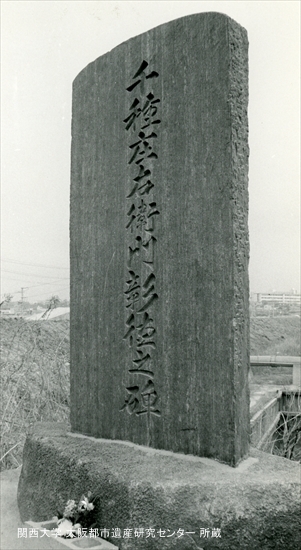 千種庄右衛門彰徳之碑
関西大学 大阪都市遺産研究センター 所蔵